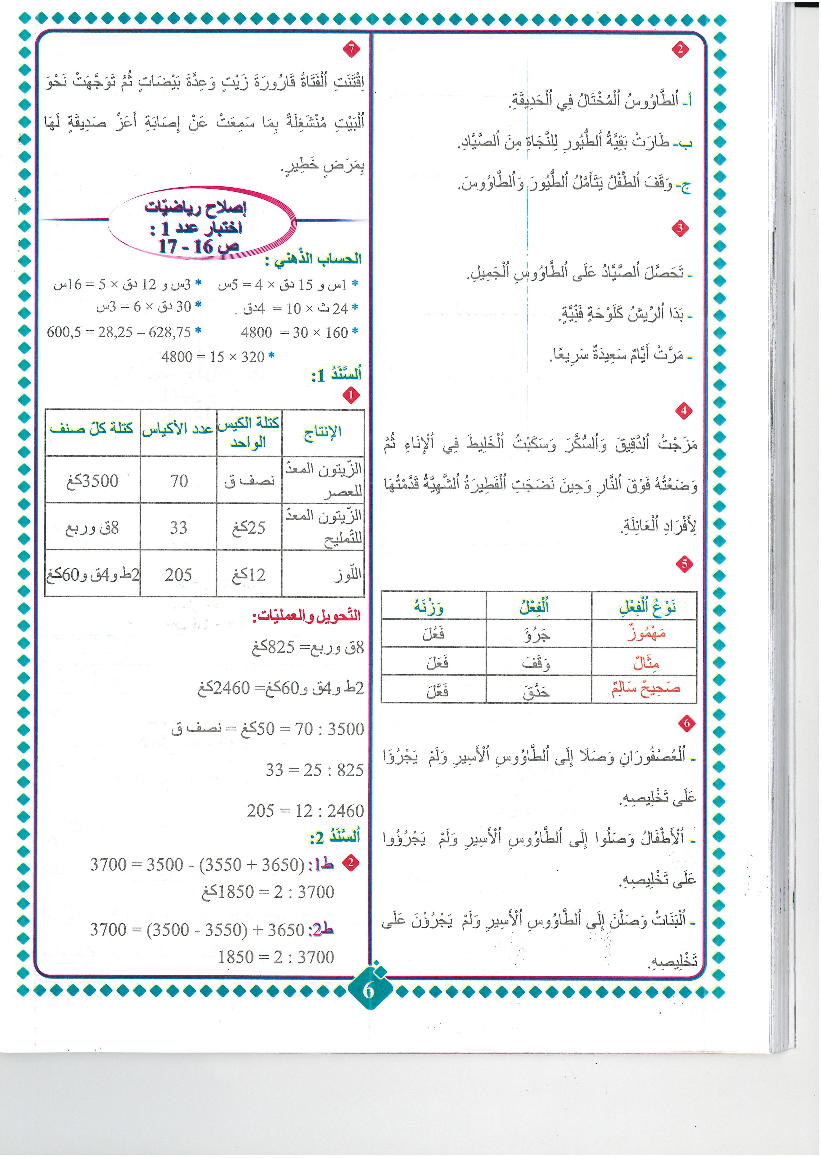 2
أ- اُلطَّاوُوسُ اُلْمُخْتَالُ فِي اُلْحَدِيقَةِ.
ب- طَارَتْ بَقِيَّةُ اُلطُّيُورِ لِلنَّجَاةِ مِنَ اُلصَّيَّادِ.
ج- وَقَفَ اُلطِّفْلُ يَتَأَمَّلُ اُلطُّيُورَ وَاُلطَّاوُوسَ.
3
- تَحَصَّلَ اُلصَّيَّادُ عَلَى اُلطَّاوُوسِ اُلْجَمِيلِ.
- بَدَا اُلرِّيشُ كَلَوْحَةٍ فَنِّيَّةٍ.
- مَرَّتْ أَيَّامٌ سَعِيدَةٌ سَرِيعًا.
4
مَزَجْتُ اُلدَّقِيقَ وَاُلسُّكَّرَ وَسَكَبْتُ اُلْخَلِيطَ فِي اُلْإِنَاءِ ثُمَّ
وَضَعْتُهُ فَوْقَ اُلنَّارِ وَحِينَ نَضِجَتِ اُلْفَطِيرَةُ اُلشَّهِيَّةُ قَدَّمْتُهَا
لِأَفْرَادِ اُلْعَائِلَةِ.
5
نَوْعُ اُلْفِعْلِ اُلْفِعْلُ وَزْنُهُ
مَهْمُوزٌ جَرُؤَ فَعُلَ
مِثَالٌ وَقَفَ فَعَلَ
صَحِيحٌ سَالِمٌ حَدَّقَ فَعَّلَ
6
- اُلْعُصْفُورَانِ وَصَلَا إِلَى اُلطَّاوُوسِ اُلْأَسِيرِ وَلَمْ يَجْرُؤَا
عَلَى تَخْلِيصِهِ.
- اُلْأَطْفَالُ وَصَلُوا إِلَى اُلطَّاوُوسِ اُلْأَسِيرِ وَلَمْ يَجْرُؤُوا
عَلَى تَخْلِيصِهِ.
- اُلْبَنَاتُ وَصَلْنَ إِلَى اُلطَّاوُوسِ اُلْأَسِيرِ وَلَمْ يَجْرُؤْنَ عَلَى
تَخْلِيصِهِ.
7
اِقْتَنَتِ اُلْفَتَاةُ قَارُورَةَ زَيْتٍ وَعِدَّةَ بَيْضَاتٍ ثُمَّ تَوَجَّهَتْ نَحْوَ
اُلْبَيْتِ مُنْشَغِلَةً بِمَا سَمِعَتْ عَنْ إِصَابَةِ أَعَزِّ صَدِيقَةٍ لَهَا
بِمَرَضٍ خَطِيرٍ.
إصلاح رياضيّات
اختبار عدد 1 :
ص 16 - 17
الحساب الذّهني :
* 1س و 15 دق × 4 = 5س * 3س و 12 دق × 5 = 16س
* 24 ث × 10 = 4دق . * 30 دق × 6 = 3س
* 160 × 30 = 4800 * 628,75 – 28,25 = 600,5
* 320 × 15 = 4800
اُلسَّنَدُ 1:
1
الإنتاج كتلة الكيس الواحد عدد الأكياس كتلة كلّ صنف
الزّيتون المعدّ للعصر نصف ق 70 3500كغ
الزّيتون المعدّ للتّمليح 25كغ 33 8ق وربع
اللّوز 12كغ 205 2ط و4ق و60كغ
التّحويل والعمليّات:
8ق وربع= 825كغ
2ط و4ق و60كغ= 2460كغ
3500 : 70 = 50كغ = نصف ق
825 : 25 = 33
2460 : 12 = 205
اُلسَّنَدُ 2:
2 ط1: (3650 + 3550) - 3500 = 3700
3700 : 2 = 1850كغ
ط2: 3650 + (3550 - 3500) = 3700
3700 : 2 = 1850
6